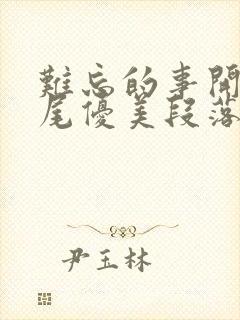 難忘的事開
尾優美段落
尹玉林